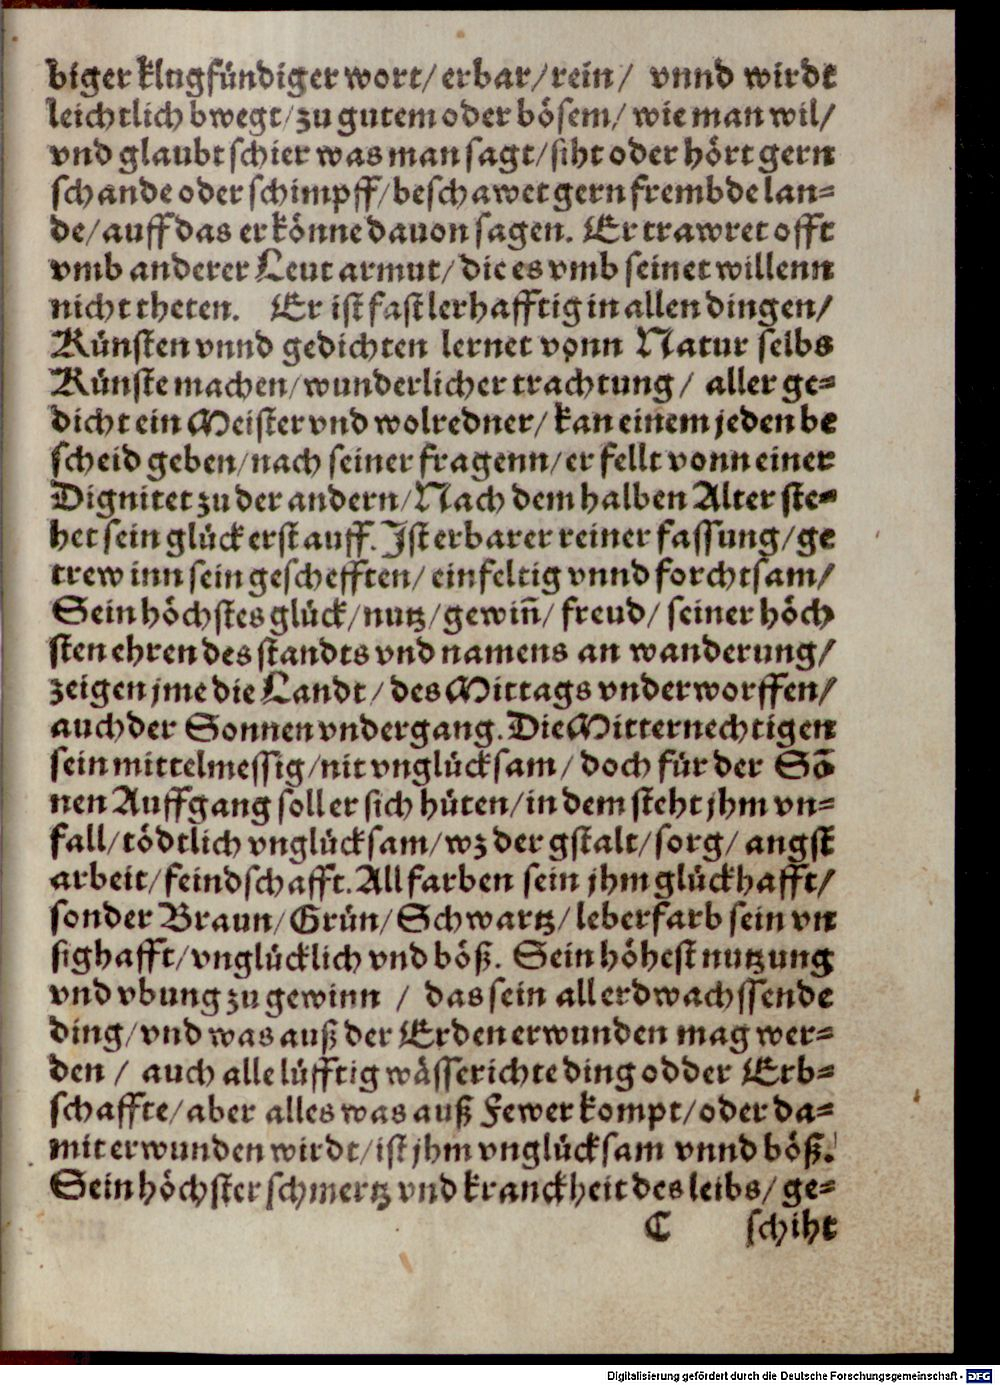 biger klugfündiger wort/ erbar/ rein/ vnnd wirdt
leichtlich bwegt/ zu gutem oder bösem/ wie man wil/
vnd glaubt schier was man sagt/ siht oder hört gern
schande oder schimpff/ beschawet gern frembde lan-
de/ auff das er könne dauon sagen. Er trawret offt
vmb anderer Leut armut/ die es vmb seinet willenn
nicht theten. Er ist fast lerhafftig in allen dingen/
Künsten vnnd gedichten lernet vonn Natur selbs
Künste machen/ wunderlicher trachtung/ aller ge-
dicht ein Meister vnd wolredner/ kan einem jeden be
scheid geben/ nach seiner fragenn/ er fellt vonn einer
Dignitet zu der andern/ Nach dem halben Alter ste-
het sein glück erst auff. Ist erbarer reiner fassung/ ge
trew inn sein geschefften/ einfeltig vnnd forchtsam/
Sein höchstes glück/ nutz/ gewiñ/ freud/ seiner höch
sten ehren des standts vnd namens an wanderung/
zeigen jme die Landt/ des Mittags vnderworffen/
auch der Sonnen vndergang. Die Mitternechtigen
sein mittelmessig/ nit vnglücksam/ doch für der Sõ
nen Auffgang soll er sich hüten/ in dem steht jhm vn-
fall/ tödtlich vnglücksam/ wz der gstalt/ sorg/ angst
arbeit/ feindschafft. All farben sein jhm glückhafft/
sonder Braun/ Grün/ Schwartz/ leberfarb sein vn
sighafft/ vnglücklich vnd böß. Sein höhest nutzung
vnd vbung zu gewinn / das sein all erdwachssende
ding/ vnd was auß der Erden erwunden mag wer-
den / auch alle lüfftig wässerichte ding odder Erb-
schaffte/ aber alles was auß Fewer kompt/ oder da-
mit erwunden wirdt/ ist jhm vnglücksam vnnd böß.
Sein höchster schmertz vnd kranckheit des leibs/ ge-
C schiht
Digitalisierung gefördert durch die Deutsche Forschungsgemeinschaft - DFG